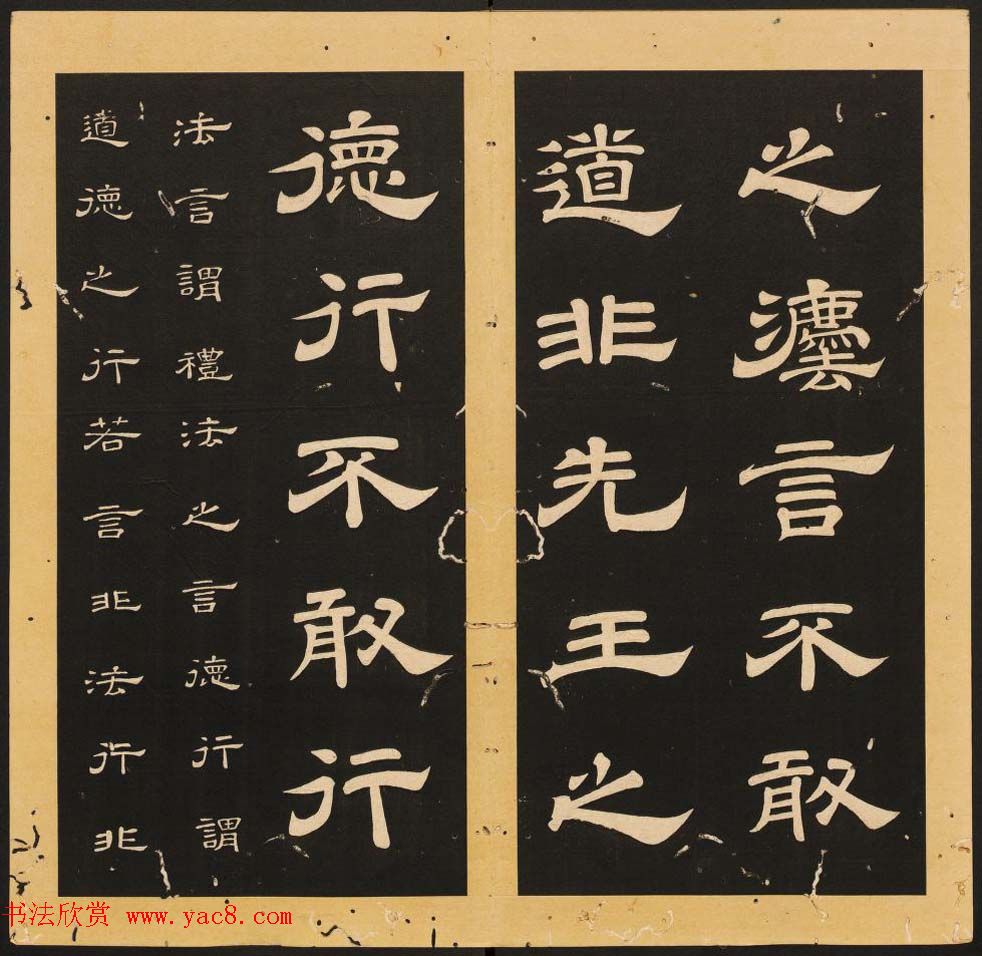 之灋言不敢
道非先王之
德行不敢行
法言謂禮法之言德行謂
道德之行若言非法行非
书法欣赏 www.yac8.com